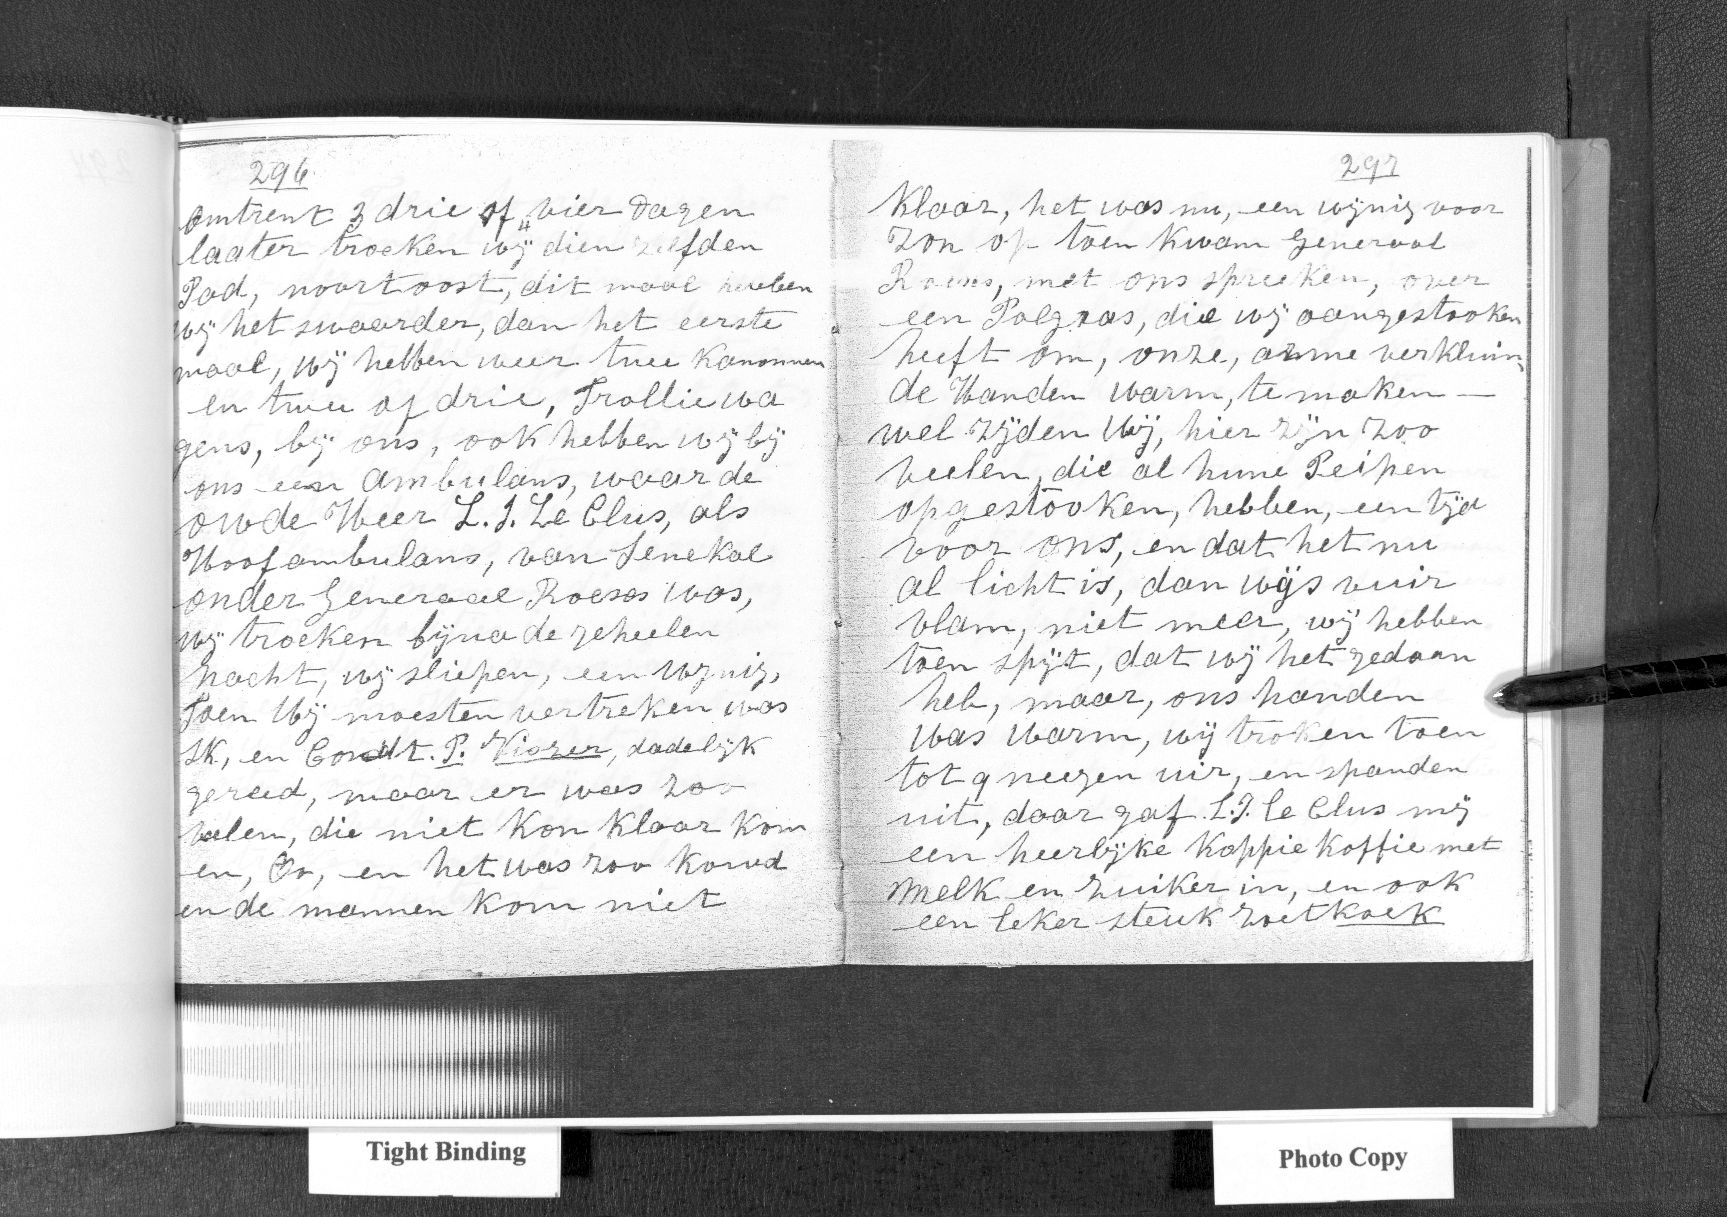 296
omtrent 3 drie of 4 vier Dagen
laater trocken wij dien zelfden
Pad, noort oost, dit maal hebben
wij het swaarder, dan het eerste
maal, wij hebben weer twee Kanonnen
en twee of drie, Trollie wa
gens, bij ons, ook hebben wij bij
ons een ambulans, waar de
owde Heer L. J. Le Clus, als
Hoof ambulans, van Senekal
onder Generaal Roeses was,
wij trocken bijna de geheelen
nacht, wij sliepen, een wynig,
Toen Wij moesten vertreken was
IK, en Comdt. P. Viozer, dadelijk
gereed, maar er was zoo
velen, die niet Kon Klaar Kom
en, Oo, en het was zoo Kowd
en de mannen Kom niet
297
Klaar, het was nu, een wynig voor
Zon op toen Kwam Generaal
Roeses, met ons spreeken, over
een Polgras, die wij aangestooken
heeft om, onze, arme verkluim,
de Handen warm, te maken —
wel zijden Wij, hier zijn zoo
veelen, die al hune Peipen
opgestooken, hebben, een tijd
voor ons, en dat het nu
al licht is, dan wijs vuir
vlam, niet meer, wij hebben
toen spijt, dat wij het gedaan
heb, maar, ons handen
was warm, wij troken toen
tot 9 neegen uir, en spanden
uit, daar gaf L.J. le Clus mij
een heerlijke Koppie Koffie met
melk en Zuiker in, en ook
een leker steuk zoetkoek
Tight Binding
Photo Copy